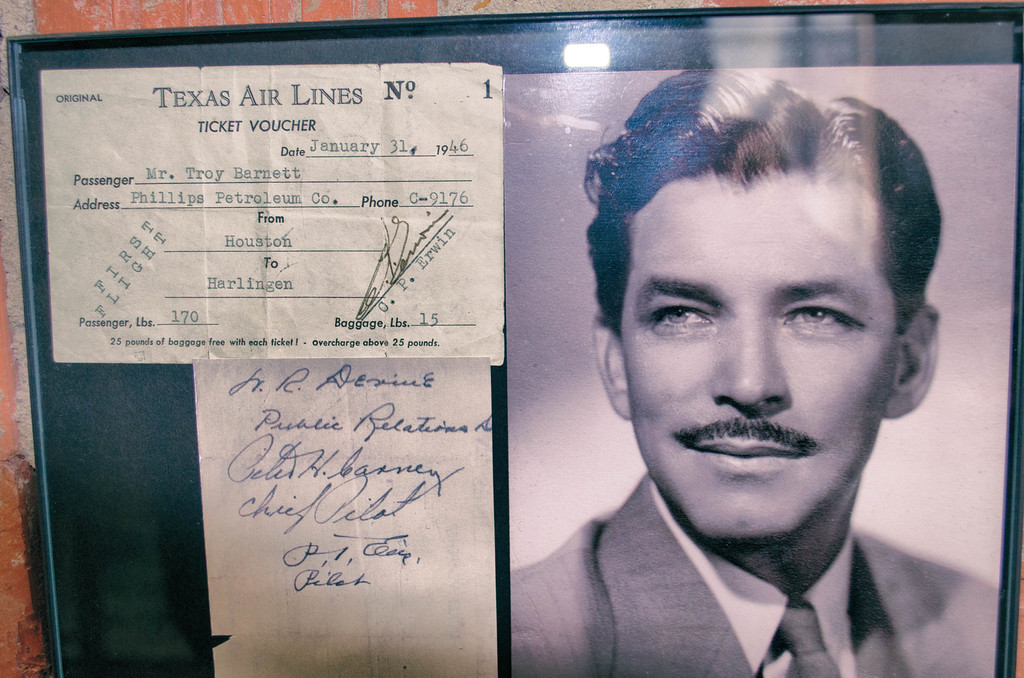 ORIGINAL
TEXAS AIR LINES Nº 1
TICKET VOUCHER
Date January 31, 1946
Passenger Mr. Troy Barnett
Address Phillips Petroleum Co. Phone C-9176
From
Houston
To
Harlingen
FIRST
FLIGHT
O. P. Erwin
Passenger, Lbs. 170 Baggage, Lbs. 15
25 pounds of baggage free with each ticket! - Overcharge above 25 pounds.
R. Devine
Public Relations D
H. Carney
Chief Pilot
Pilot